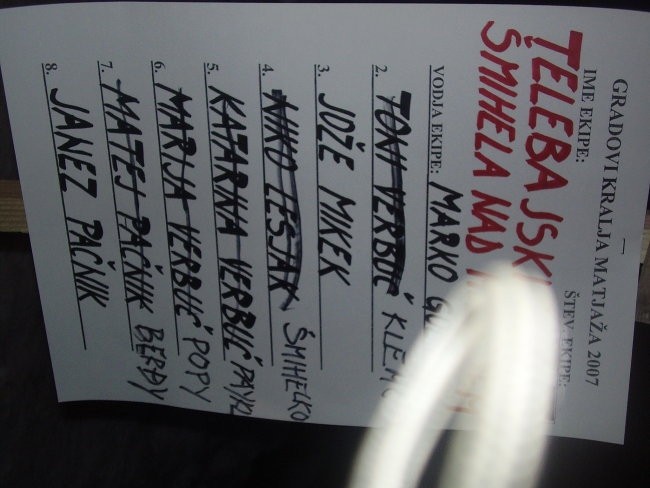 GRADOVI KRALJA MATJAŽA 2007
IME EKIPE: ŠTEV. EKIPE:
ŠMIHELA NAD
VODJA EKIPE: MARKO
2. TONI VERBUČ
3. JOŽE MIKEK
4. NIKO LESJAK ŠMIHELKO
5. KATARINA VERBUČ
6. MARIJA VERBUČ POPY
7. MATEJ PAČNIK BERDY
8. JANEZ PAČNIK